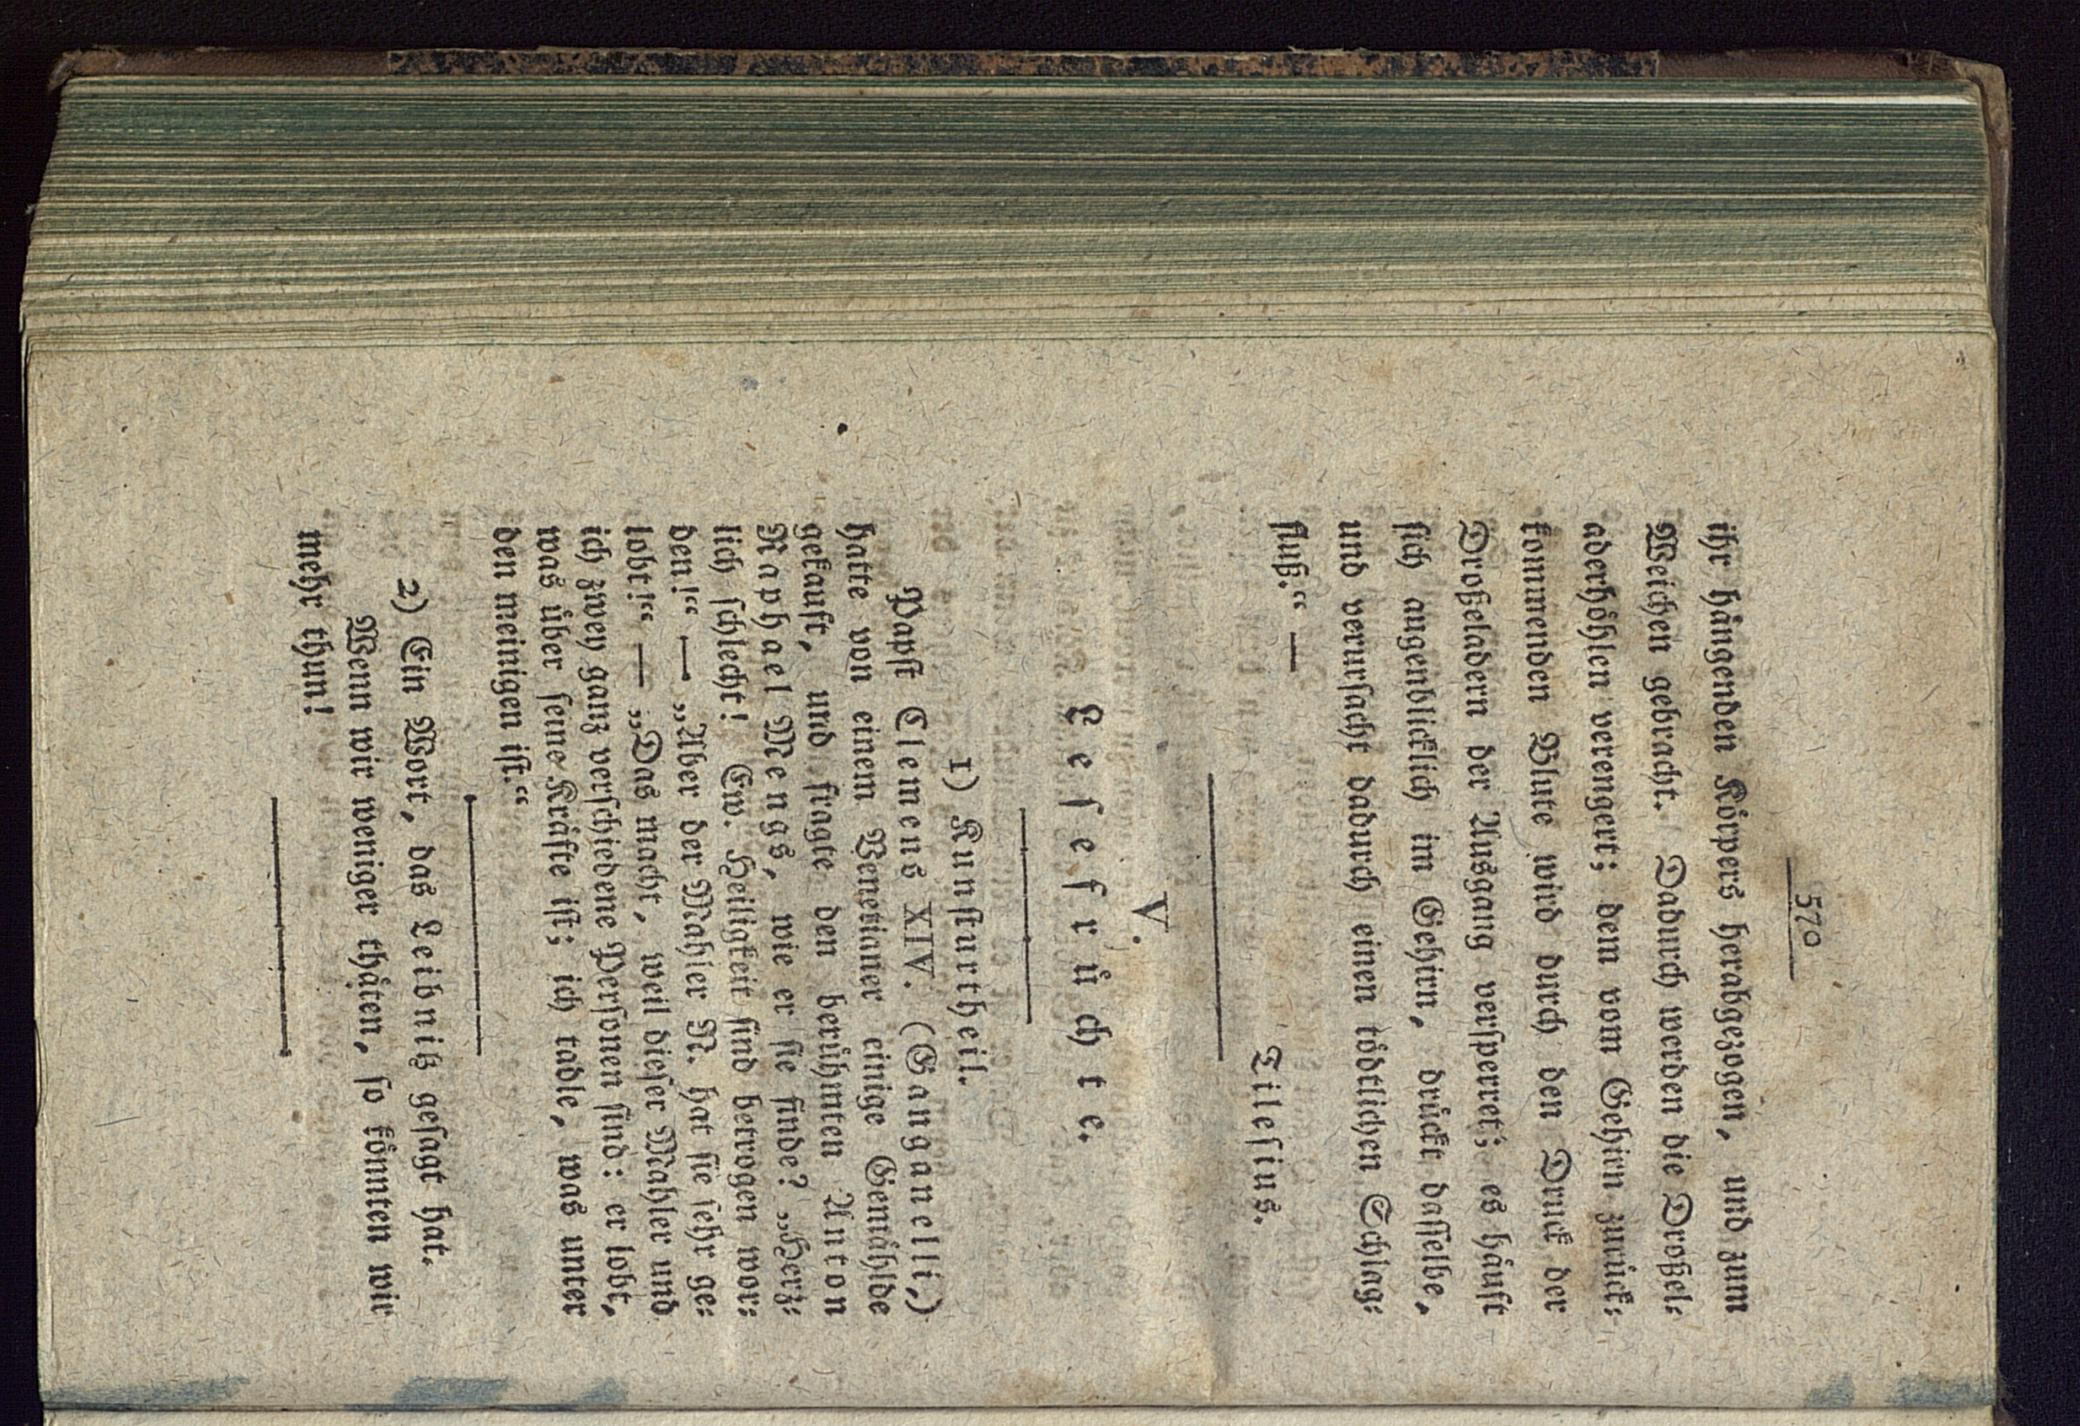 570
ihr hångenden Kőrpers herabgezogen, und zum
Weichen gebracht. Dadurch werden die Droßel-
aderhőhlen verengert; dem vom Gehirn zurück-
kommenden Blute wird durch den Druck der
Droßeladern der Ausgang versperret; es håuft
sich augenblicklich im Gehirn, drůckt dasselbe,
und verursacht dadurch einen tődtlichen Schlag-
fluß.“ —
Tilesius.
V.
Lesefrůchte.
1) Kunsturtheil.
Papst Clemens XIV. (Ganganelli,)
hatte von einem Venetianer einige Gemåhlde
gekauft, und fragte den berůhmten Anton
Raphael Mengs, wie er sie finde? „Herz-
lich schlecht! Ew. Heiligkeit sind betrogen wor-
den!“ — „Aber der Mahler N. hat sie sehr ge-
lobt!“ — „Das macht, weil dieser Mahler und
ich zwey ganz verschiedene Personen sind: er lobt,
was ůber seine Kråfte ist; ich tadle, was unter
den meinigen ist.“
2) Ein Wort, das Leibnitz gesagt hat.
Wenn wir weniger thåten, so kőnnten wir
mehr thun!